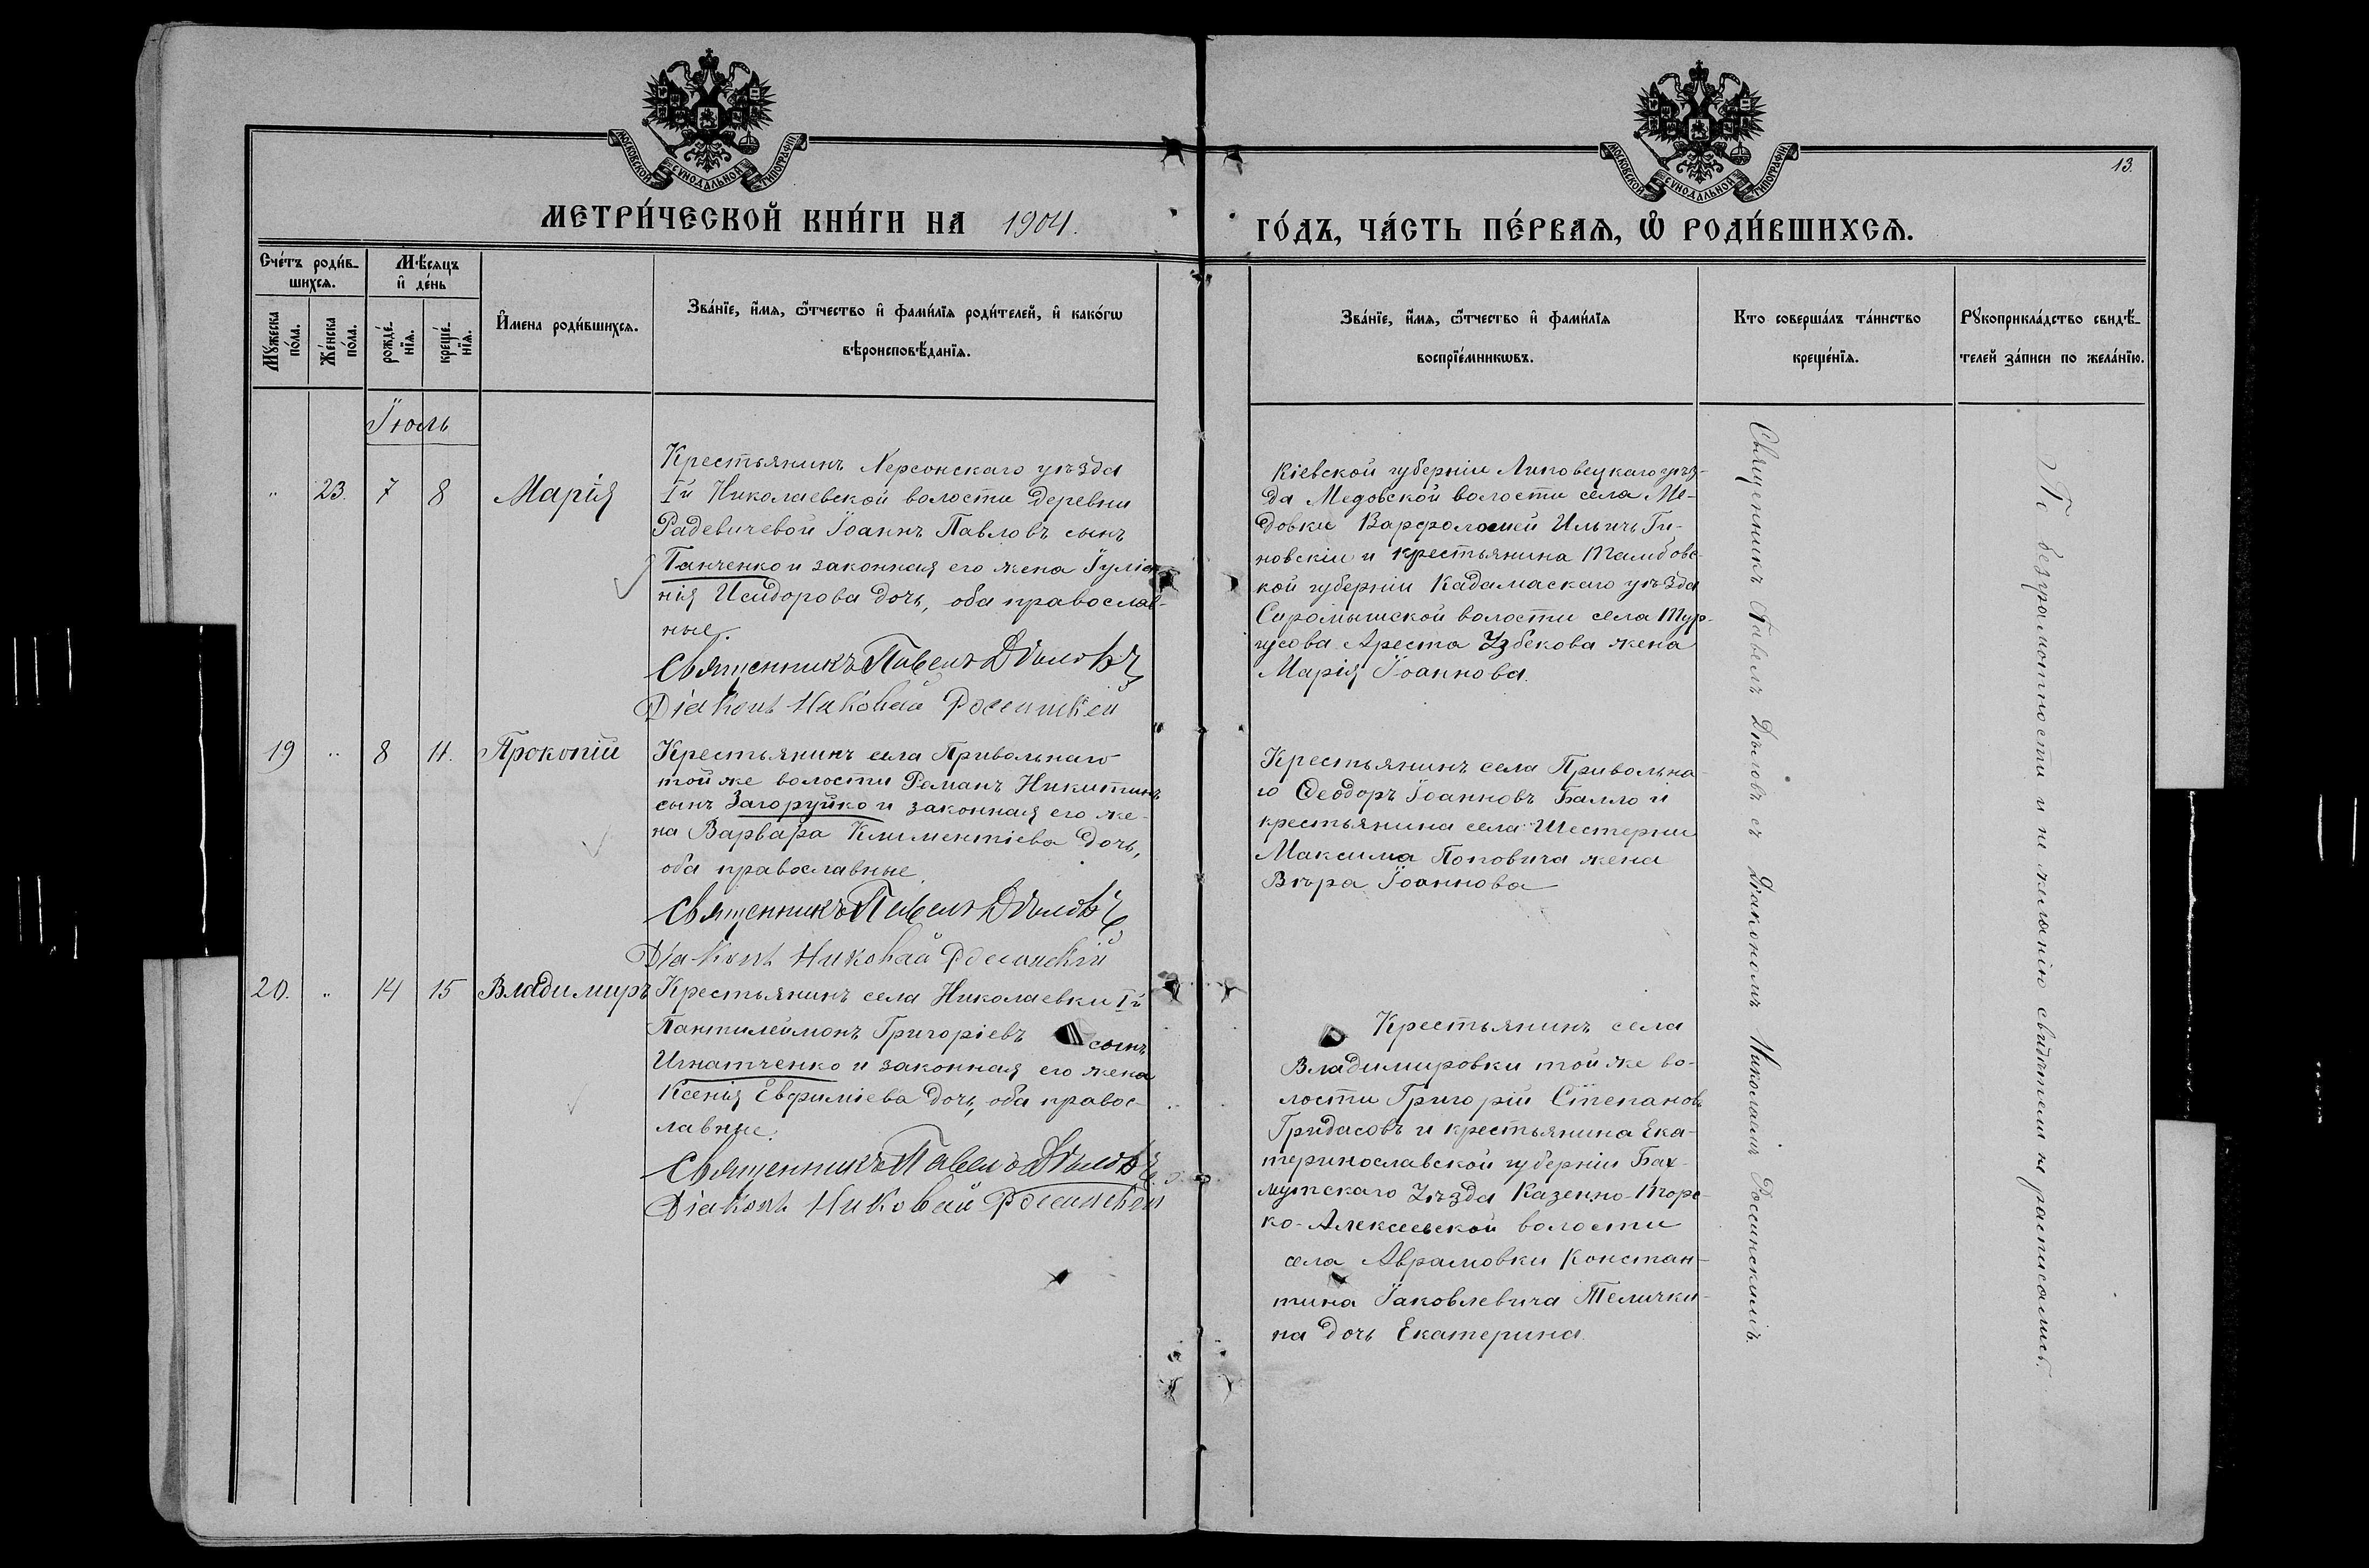 МОСКОВСКОЙ СУНОДАЛЬНОЙ ТИПОГРАФІИ
МОСКОВСКОЙ СУНОДАЛЬНОЙ ТИПОГРАФІИ
13.
МЕТРИ́ЧЕСКОЙ КНИ́ГИ НА 1904.
ГО́ДЪ, ЧА́СТЬ ПЕ́РВАѦ, Ѽ РОДИ́ВШИХСѦ.
Сче́тъ роди́в-
шихсѧ.
Мꙋ́жеска
по́ла.
Же́нска
по́ла.
Мѣ́сѧцъ
и҆ де́нь
рожде́-
нїѧ.
креще́-
нїѧ.
И҆́мена роди́вшихсѧ.
Зва́нїе, и҆́мѧ, ѻ҆́тчество и҆ фами́лїѧ роди́телей, и҆ како́гѡ
вѣроисповѣ́данїѧ.
Зва́нїе, и҆́мѧ, ѻ҆́тчество и҆ фами́лїѧ
воспрїе́мникѡвъ.
Кто соверша́лъ та́инство
креще́нїѧ.
Рꙋкоприкла́дство свидѣ́-
телей за́писи по жела́нїю.
Іюль
" 23. 7 8 Марія
Крестьянинъ Херсонскаго уѣзда
Iй Николаевской волости деревни
Радевичевой Іоаннъ Павловъ сынъ
Ганченко и законная его жена Іуліа-
нія Исидорова дочь, оба православ-
ные.
Священникъ Павелъ Дюловъ
Діаконъ Николай Россинскій
Кіевской губерніи Липовецкаго уѣз-
да Медовской волости села Ме-
довки Варфоломей Ильичъ Ги-
новскій и крестьянина Тамбовс-
кой губерніи Кадамаскаго уѣзда
волости села Тур-
гусова Ареста Узбекова жена
Марія Іоаннова.
19 " 8 11. Прокопій
Крестьянинъ села Привольнаго
той же волости Романъ Никитинъ
сынъ Загоруйко и законная его же-
на Варвара Климентіева дочь,
оба православные
Священникъ Павелъ Дюловъ
Діаконъ Николай Россинскій
Крестьянинъ села Привольна-
го Ѳеодоръ Іоанновъ Балло и
крестьянина села Шестерни
Максима Поповича жена
Вѣра Іоаннова
20. " 14 15 Владимиръ
Крестьянинъ села Николаевки Iй
Пантилеймонъ Григоріевъ сынъ
Игнатченко и законная его жена
Ксенія Евфиміева дочь, оба правос-
лавные.
Священникъ Павелъ Дюловъ
Діаконъ Николай Россинскій
Крестьянинъ села
Владимировки той же во-
лости Григорій Степановъ
Гридасовъ и крестьянина Ека-
теринославской губерніи Бах-
мутскаго Уѣзда Казенно-Торс-
ко-Алексеевской волости
села Аврамовки Констан-
тина Іаковлевича Телички-
на дочь Екатерина.
Священникъ Павелъ Дюловъ съ Діакономъ Николаемъ Россинскимъ.
По безграмотности и не желанію свидѣтели не расписались.